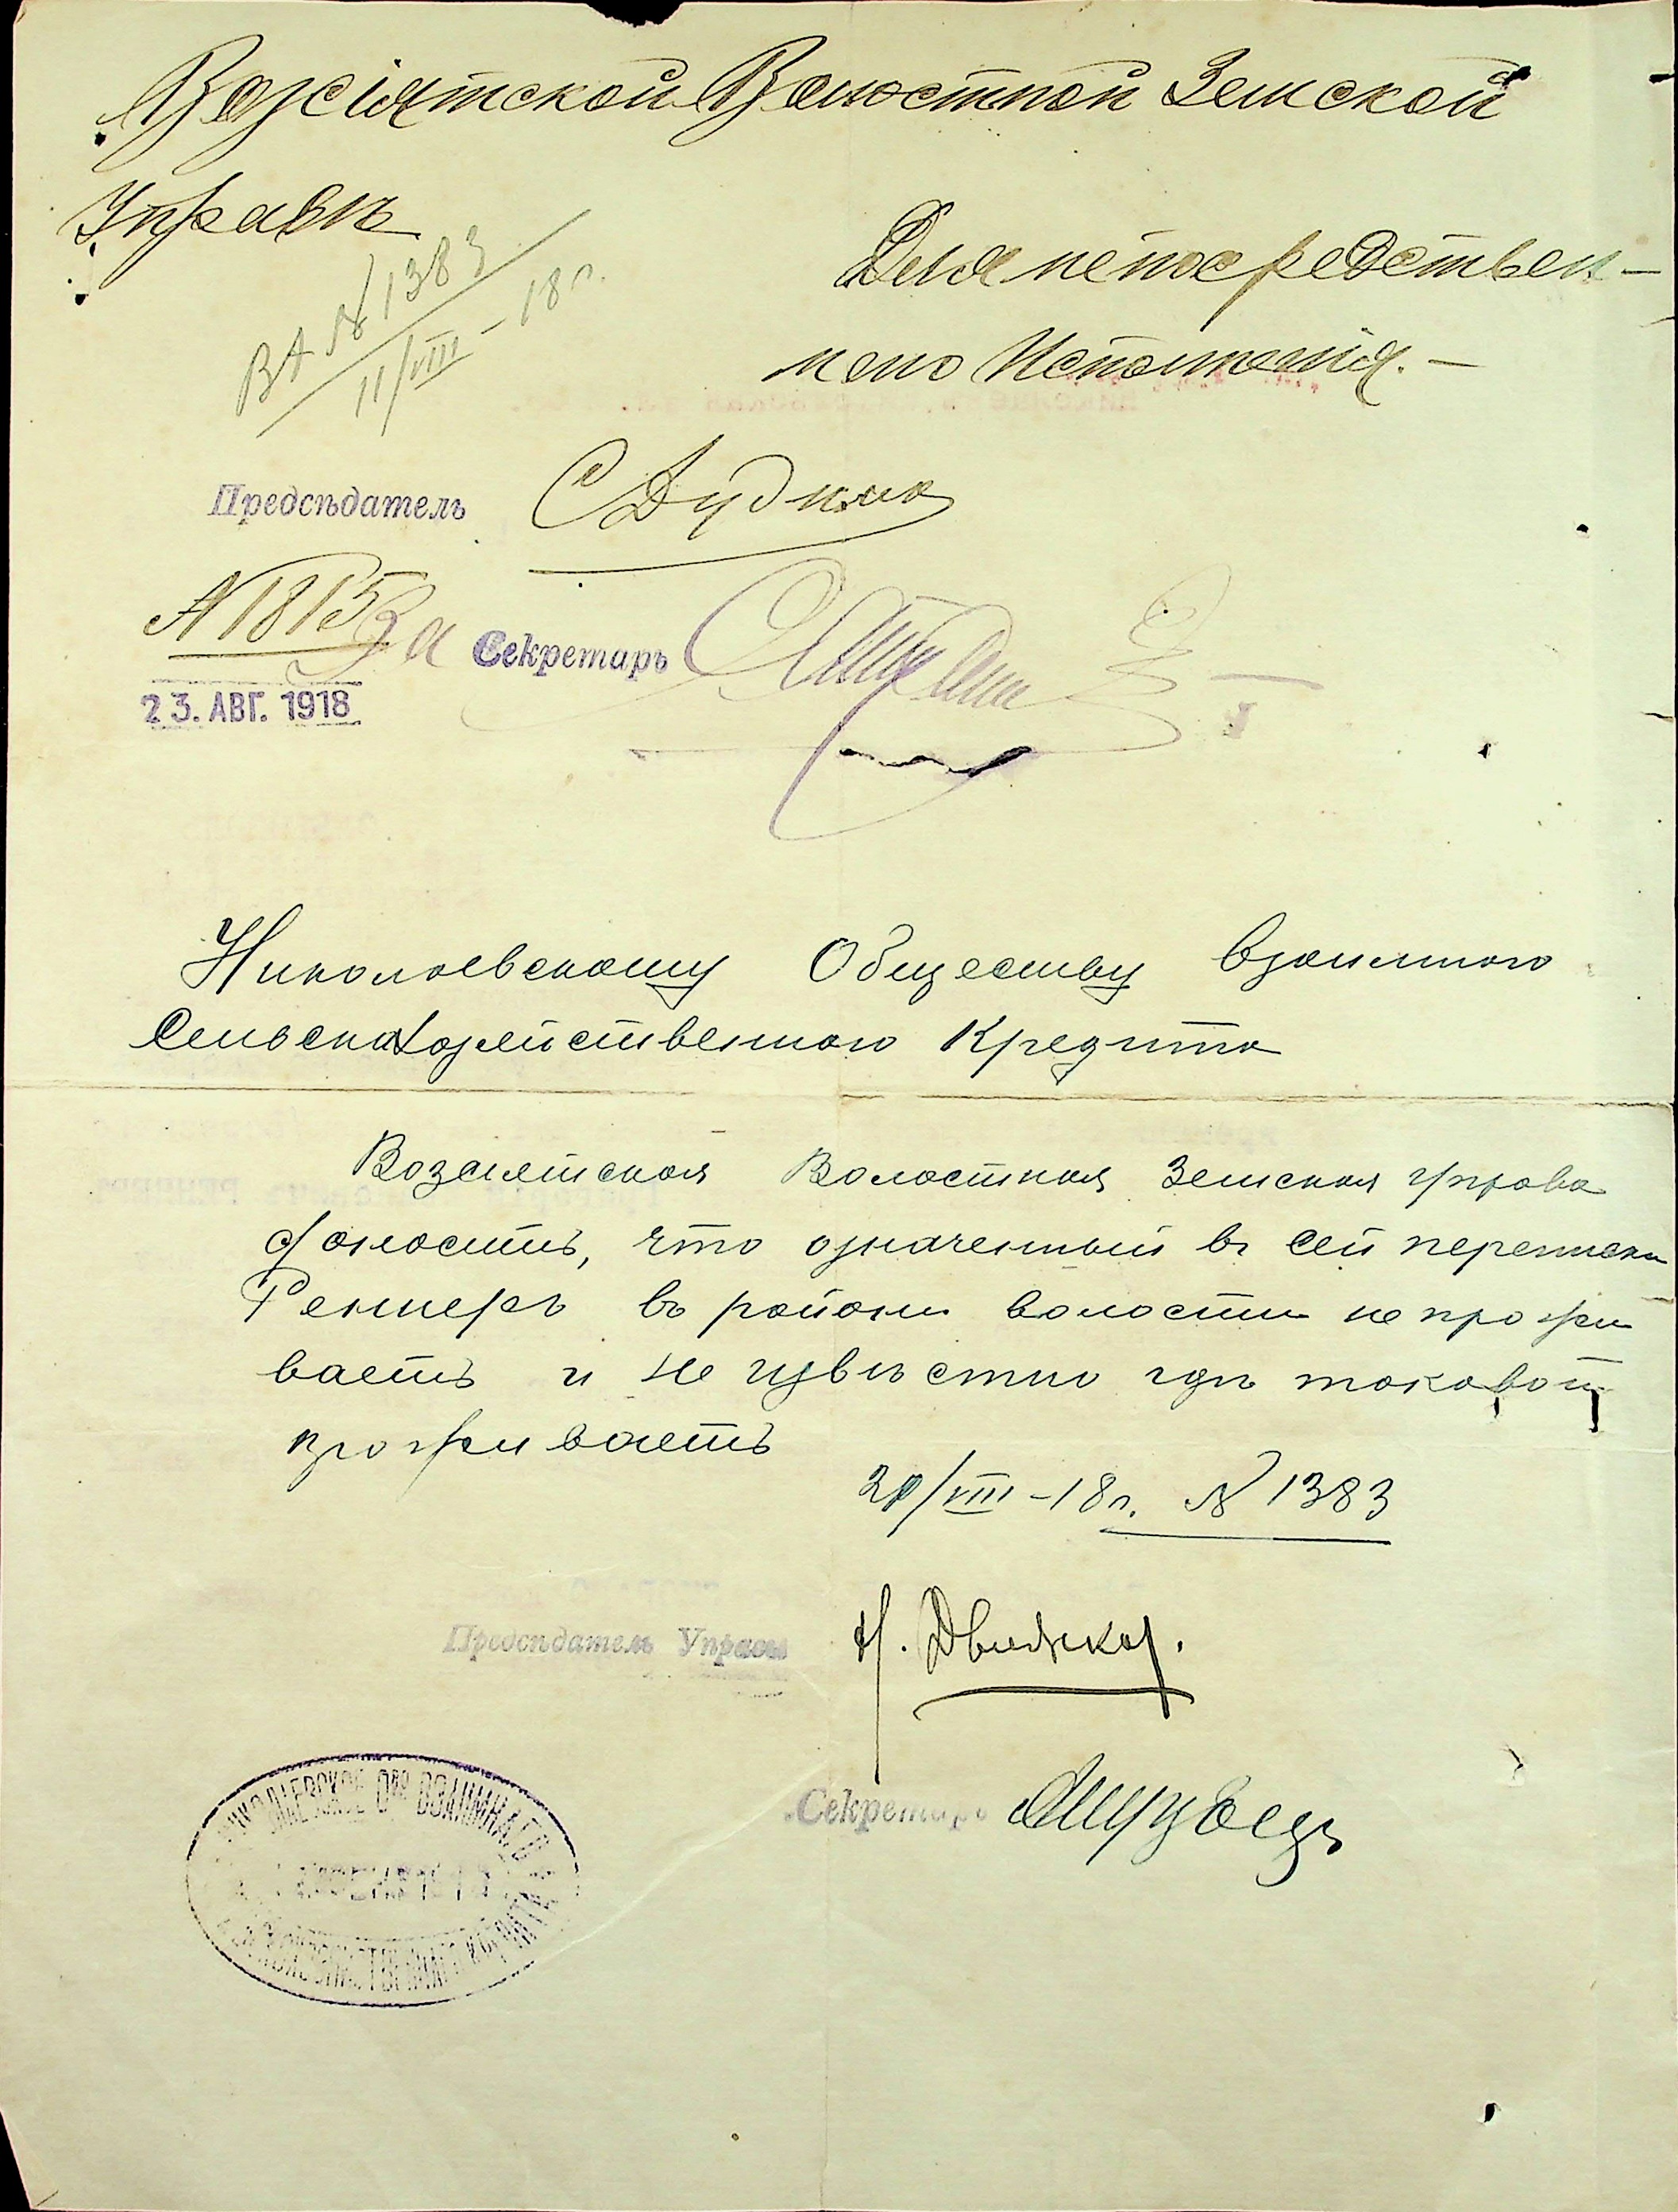 Возсіятской Волостной Земской
Управѣ
Вх № 1383
11/VIII – 18 г.
Для непосредствен-
наго Исполненія. –
Предсѣдатель
№ 1815
За Секретарь
23. АВГ. 1918
Николаевскому Обществу Взаимного
Сельскохозяйственного Кредита
Возсиятская Волостная Земская Управа
доноситъ, что означенный въ сей переписки
Реннеръ въ районе волости не прожи
ваетъ и не извѣстно гдѣ таковой
проживаетъ
/VIII – 18 г. № 1383
Предсѣдатель Управы
Секретарь
НИКОЛАЕВСКОЕ О-ВО ВЗАИМНАГО
СЕЛЬСКОХОЗЯЙСТВЕННАГО КРЕДИТА